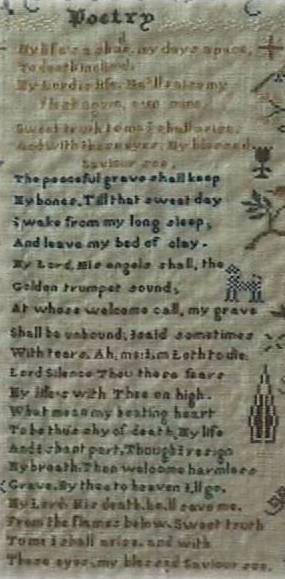 Poetry
My life's a shad, my days apace,
To death incline,
My Lord is life, He'll raise my
That again, even mine.
Sweet truth to me i shall arise,
And with these eyes, My blessed
Saviour see,
The peaceful grave shall keep
My bones, Till that sweet day
i wake from my long sleep,
And leave my bed of clay.
My Lord, His angels shall, the
Golden trumpet sound,
At whose welcome call, my grave
Shall be unbound, I said sometimes
With tears, Ah, me: I,m Loth to die.
Lord Silence Thou these fears
My life,s with Thee on high.
What mean my beating heart
To be thus shy of death, My life
And I shant part, Though I resign
My breath, Then welcome harmless
Grave, By thee to heaven I,ll go.
My Lord, His death, he,ll save me,
From the flames below, Sweet truth
To me I shall arise, and with
These eyes, my blessed Saviour see.